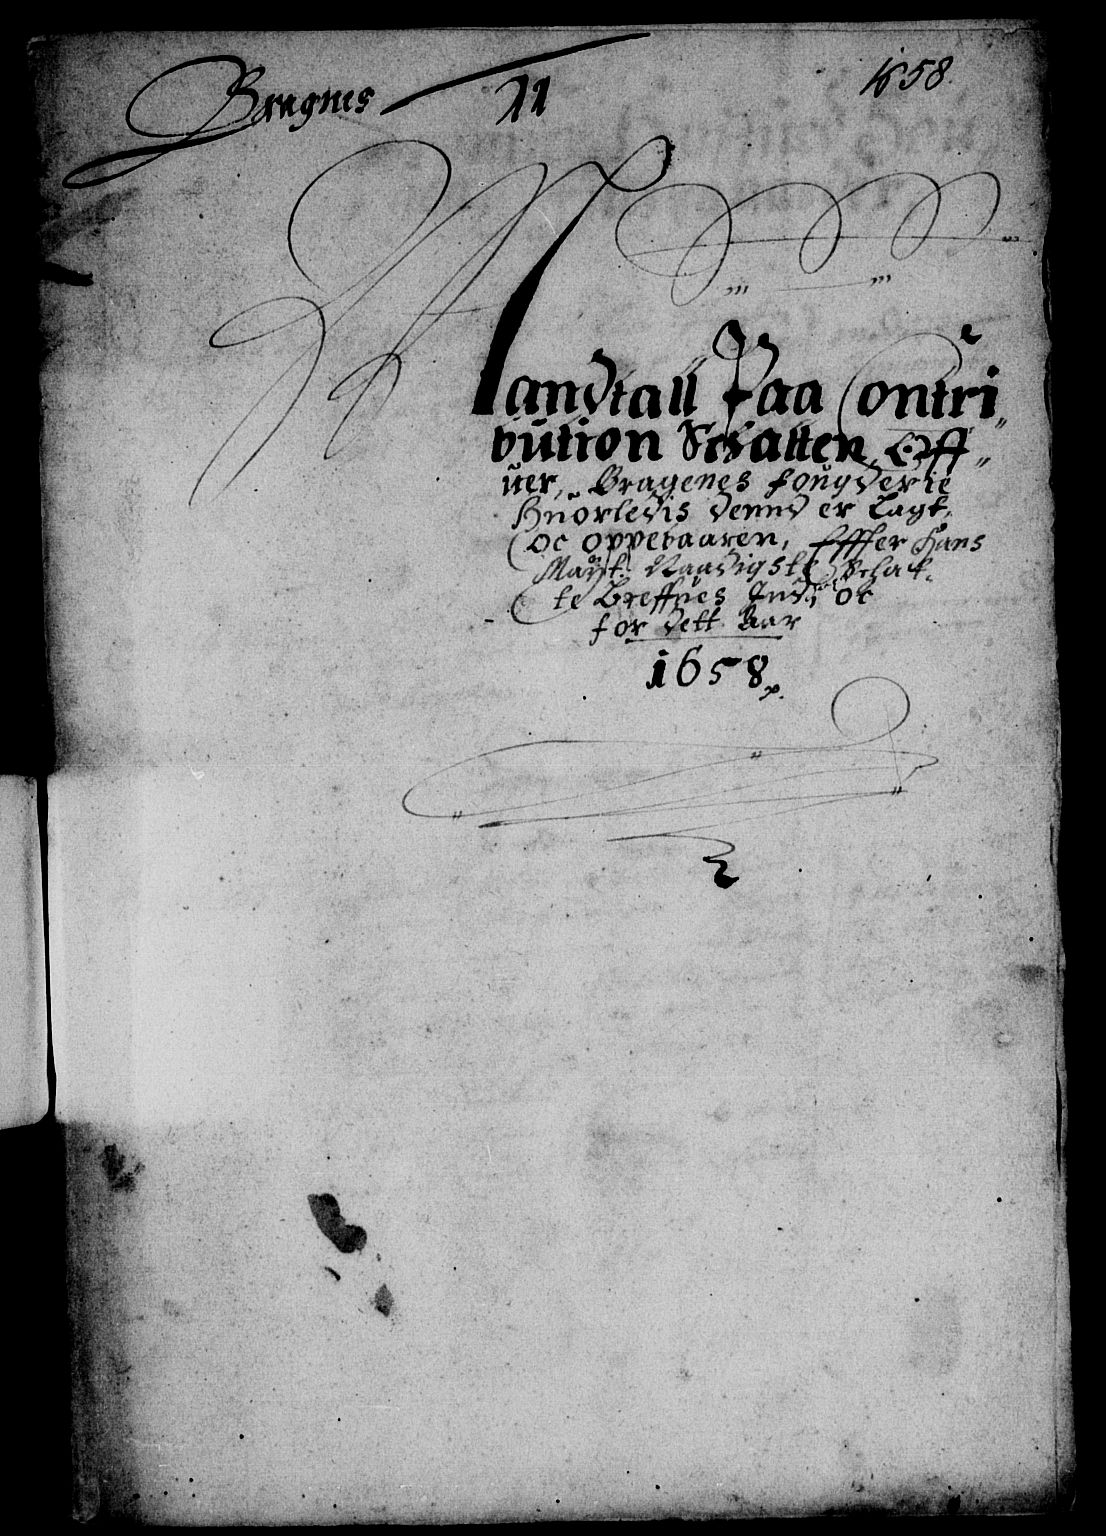 Bragnes 11 1658.
Mandtall Paa Contri„
bution Schatten, Off„
uer, Bragenes fougderie
Huorledis dennd er Lagt,
oc oppebaaren, Effter Hans
Mayt: Naadigste Schat„
te Breffues Indh: oc
for dett Aar
1658